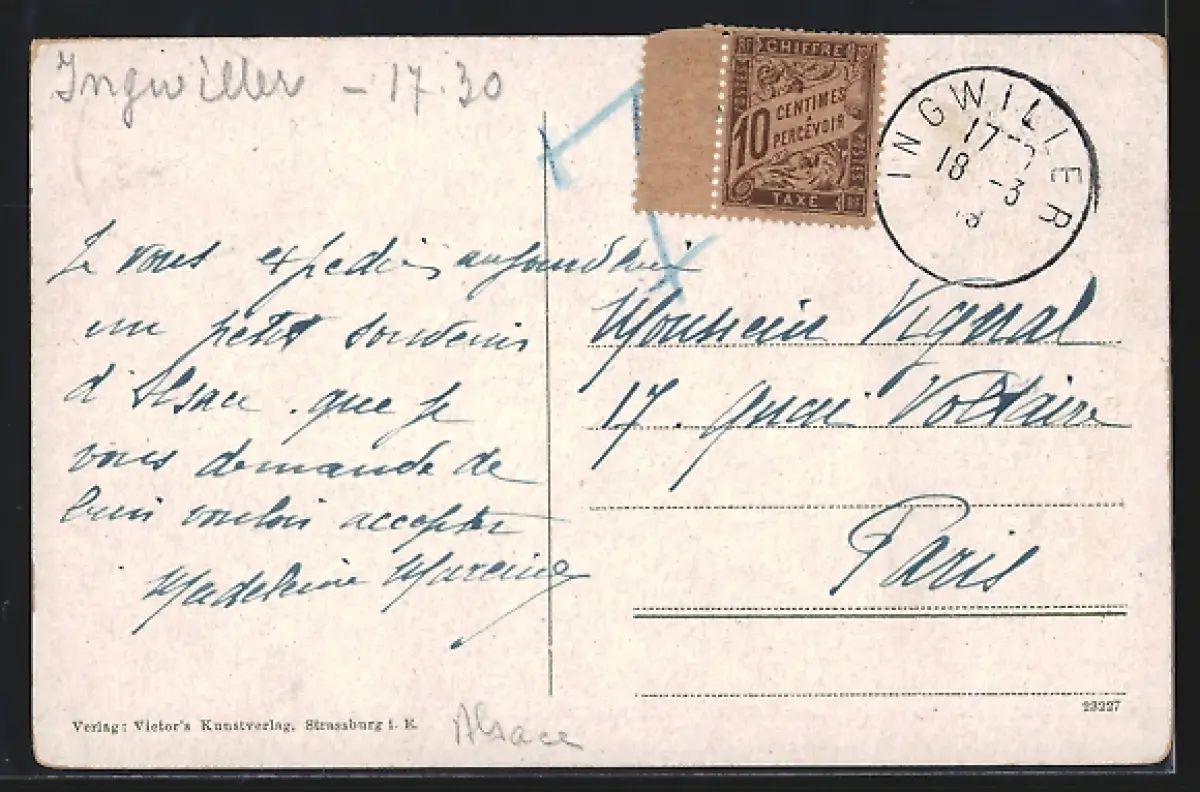 Ingwiller - 17.30
RF CHIFFRE RF
POSTES
10 CENTIMES
À
PERCEVOIR
POSTES
TAXE RF
INGWILLER
17-
18 -3
T
Je vous expédie aujourd'hui
un petit souvenir
d'Alsace. que je
vous demande de
bien vouloir accepter
Madeleine
Monsieur Vignal
17. Quai Voltaire
Paris
Verlag: Victor's Kunstverlag, Strassburg i. E.
Alsace
23227